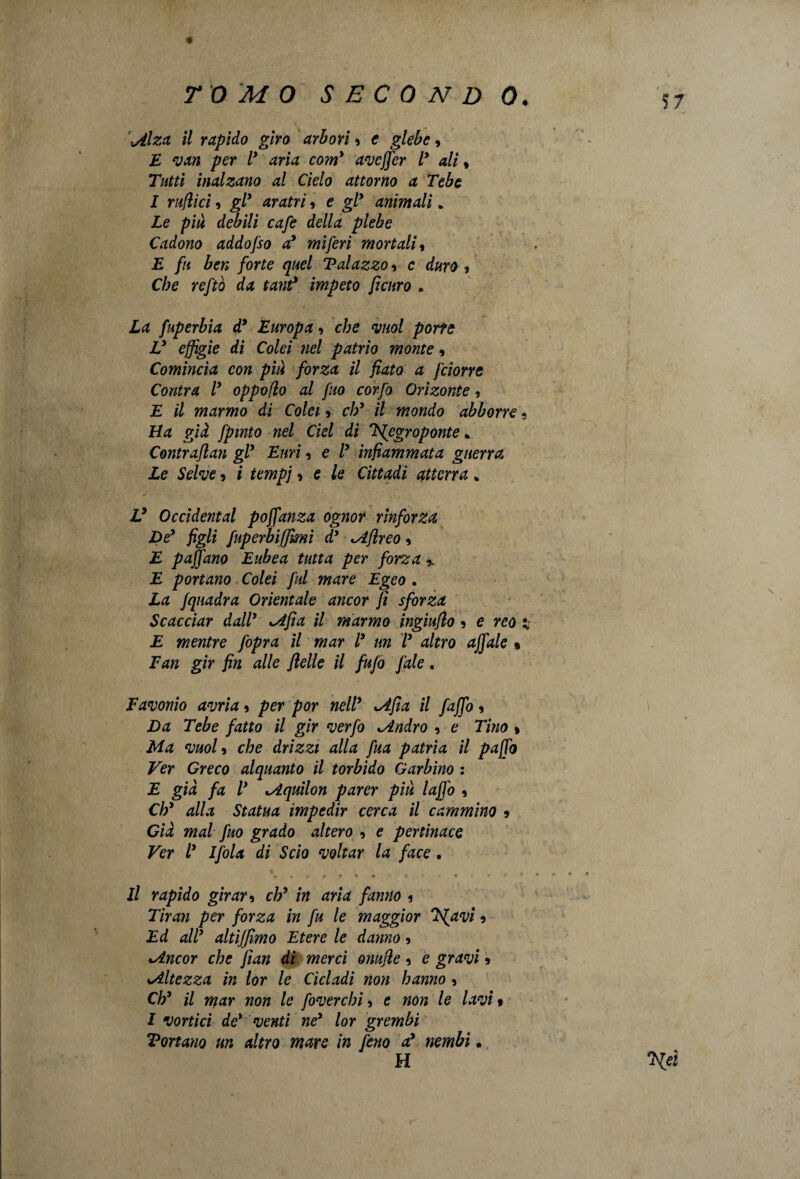 TOMO SECONDO. 57
Alza il rapido giro arbori, e glebe,
E van per l' aria com' aveſſer l' ali,
Tutti inalzano al Cielo attorno a Tebe
I ruſtici, gl' aratri, e gl' animali.
Le più debili caſe della plebe
Cadono addoſso a' miſeri mortali,
E fu ben forte quel Palazzo, e duro,
Che reſtò da tant' impeto ſicuro.
La ſuperbia d' Europa, che vuol porre
L' effigie di Colei nel patrio monte,
Comincia con più forza il fiato a ſciorre
Contra l' oppoſto al ſuo corſo Orizonte,
E il marmo di Colei, ch' il mondo abborre,
Ha già ſpinto nel Ciel di Negroponte.
Contraſtan gl' Euri, e l' infiammata guerra
Le Selve, i tempj, e le Cittadi atterra.
L' Occidental poſſanza ognor rinforza
De' figli ſuperbiſſimi d' Aſtreo,
E paſſano Eubea tutta per forza,
E portano Colei ſul mare Egeo.
La ſquadra Orientale ancor ſi sforza
Scacciar dall' Aſia il marmo ingiuſto, e reo;
E mentre ſopra il mar l' un l' altro aſſale,
Fan gir fin alle ſtelle il fuſo ſale.
Favonio avria, per por nell' Aſia il ſaſſo,
Da Tebe fatto il gir verſo Andro, e Tino,
Ma vuol, che drizzi alla ſua patria il paſſo
Ver Greco alquanto il torbido Garbino:
E già fa l' Aquilon parer più laſſo,
Ch' alla Statua impedir cerca il cammino,
Già mal ſuo grado altero, e pertinace
Ver l' Iſola di Scio voltar la face.
Il rapido girar, ch' in aria fanno,
Tiran per forza in ſu le maggior Navi,
Ed all' altiſſimo Etere le danno,
Ancor che ſian di merci onuſte, e gravi,
Altezza in lor le Cicladi non hanno,
Ch' il mar non le ſoverchi, e non le lavi,
I vortici de' venti ne' lor grembi
Portano un altro mare in ſeno a' nembi.
H Nei